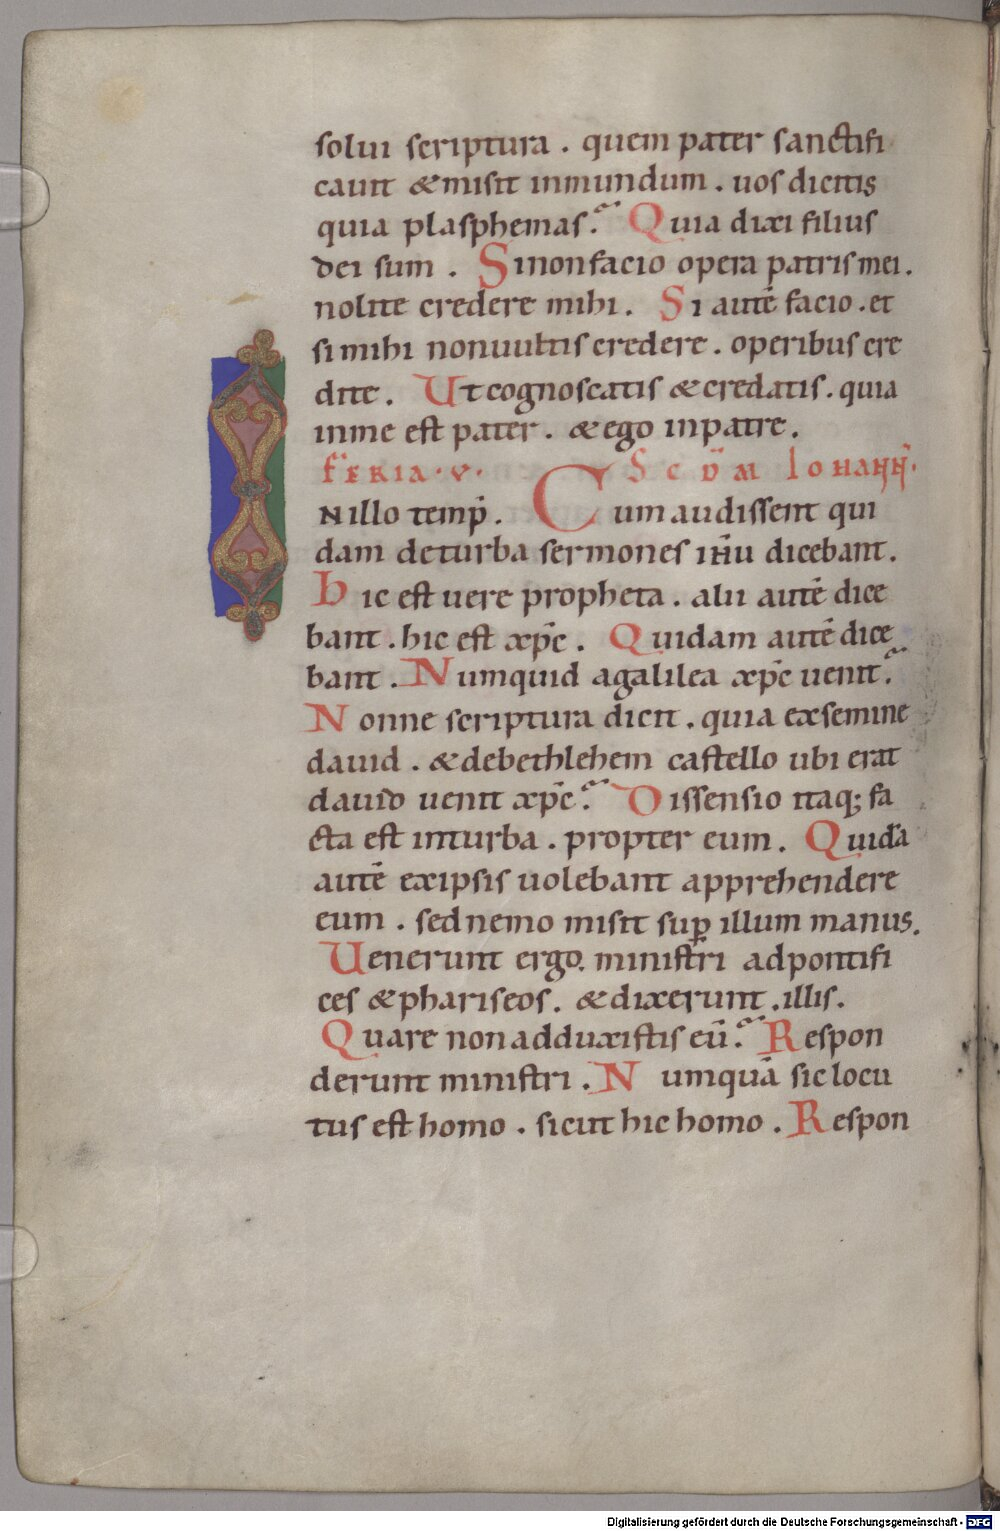 solui scriptura. quem pater sanctifi
cauit & misit in mundum. uos dicitis
quia plasphemas? Quia dixi filius
dei sum. Si non facio opera patris mei.
nolite credere mihi. Si autē facio. et
si mihi non uultis credere. operibus cre
dite. Ut cognoscatis & credatis. quia
in me est pater. & ego in patre.
FERIA. V. SCDM IOHANN̄.
IN illo temp̄. Cum audissent qui
dam de turba sermones ihū dicebant.
hic est uere propheta. alii autē dice
bant. hic est xp̄c. Quidam autē dice
bant. Numquid a galilea xp̄c uenit?
Nonne scriptura dicit. quia ex semine
dauid. & de bethlehem castello ubi erat
dauid uenit xp̄c? Dissensio itaq; fa
cta est in turba. propter eum. Quidā
autē ex ipsis uolebant apprehendere
eum. sed nemo misit sup̱ illum manus.
Uenerunt ergo. ministri ad pontifi
ces & phariseos. & dixerunt. illis.
Quare non adduxistis eū? Respon
derunt ministri. Numquā sic locu
tus est homo. sicut hic homo. Respon
Digitalisierung gefördert durch die Deutsche Forschungsgemeinschaft - DFG